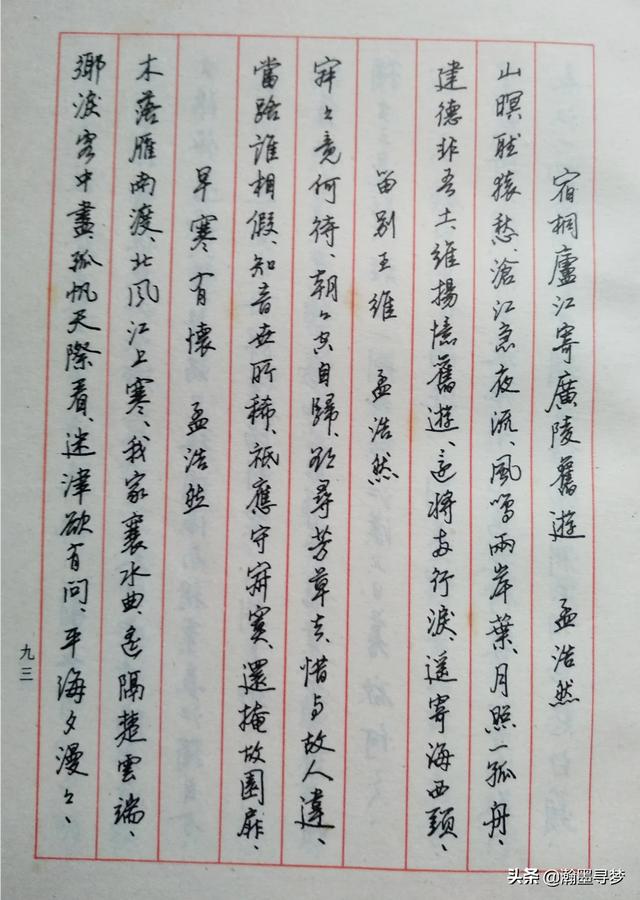 宿桐廬江寄廣陵舊遊 孟浩然
山暝聽猿愁、滄江急夜流、風鳴兩岸葉、月照一孤舟、
建德非吾土、維揚憶舊遊、還將兩行淚、遥寄海西頭、
留别王維 孟浩然
寂々竟何待、朝々空自歸、欲尋芳草去、惜与故人違、
當路誰相假、知音世所稀、祇應守寂寞、還掩故園扉、
早寒有懷 孟浩然
木落雁南渡、北風江上寒、我家襄水曲、遥隔楚雲端、
鄉淚客中盡、孤帆天際看、迷津欲有問、平海夕漫々、
九三
头条 @瀚墨寻梦